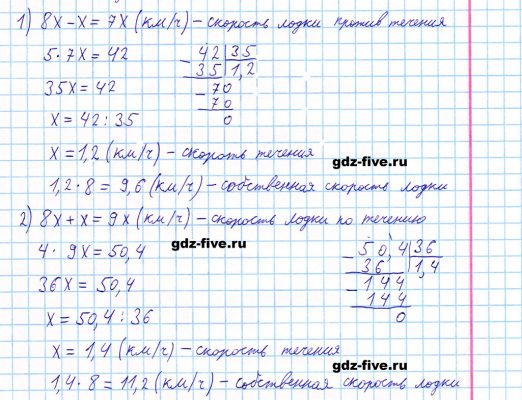 1) 8x - x = 7x (км/ч) - скорость лодки против течения
5 · 7x = 42
42 | 35
35 | 1,2
70
70
0
35x = 42
x = 42 : 35
x = 1,2 (км/ч) - скорость течения
gdz-five.ru
1,2 · 8 = 9,6 (км/ч) - собственная скорость лодки
2) 8x + x = 9x (км/ч) - скорость лодки по течению
gdz-five.ru
4 · 9x = 50,4
50,4 | 36
36 | 1,4
144
144
0
36x = 50,4
x = 50,4 : 36
x = 1,4 (км/ч) - скорость течения
gdz-five.ru
1,4 · 8 = 11,2 (км/ч) - собственная скорость лодки